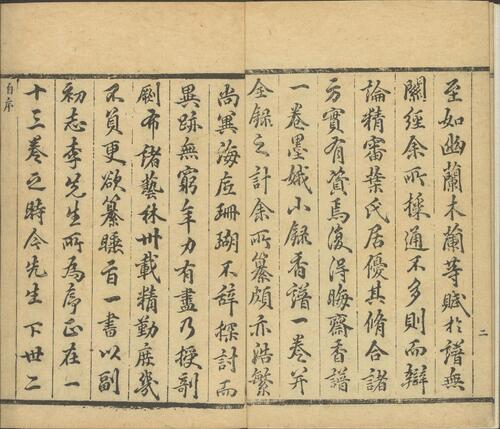 至如幽蘭木蘭等賦於譜無
關經余所採通不多則而辯
論精審葉氏居優其脩合諸
方實有資焉復得晦齋香譜
一卷墨娥小録香譜一卷并
全録之計余所纂頗亦浩繁
尚冀海底珊瑚不辭探討而
異跡無窮年力有盡乃授剞
劂布諸藝林卅載精勤庶幾
不負更欲纂睡旨一書以副
初志李先生所為序正在一
十三卷之時今先生下世二
自序
二